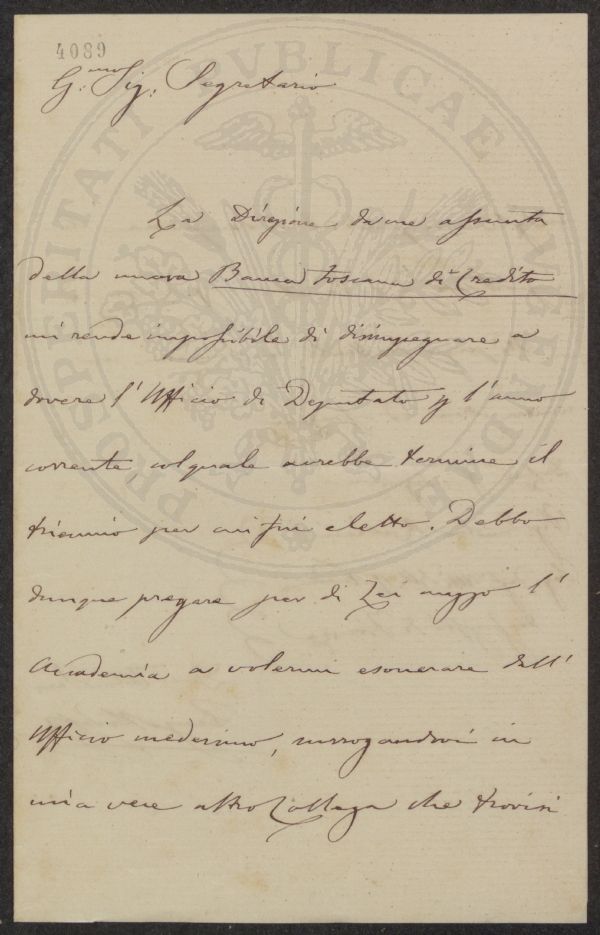 4089
G.mo Sig: Segretario
La Direzione da me assunta
della nuova Banca toscana di Credito
mi rende impossibile di disimpegnare a
dovere l'Ufficio di Deputato p l'anno
corrente, col quale avrebbe termine il
triennio per cui fui eletto. Debbo
dunque pregare per di Lei mezzo l'
Accademia a volermi esonerare dall'
Ufficio medesimo, surrogandovi in
mia vece altro Collega che trovisi
PROSPERITATI PVBLICAE AVGENDAE